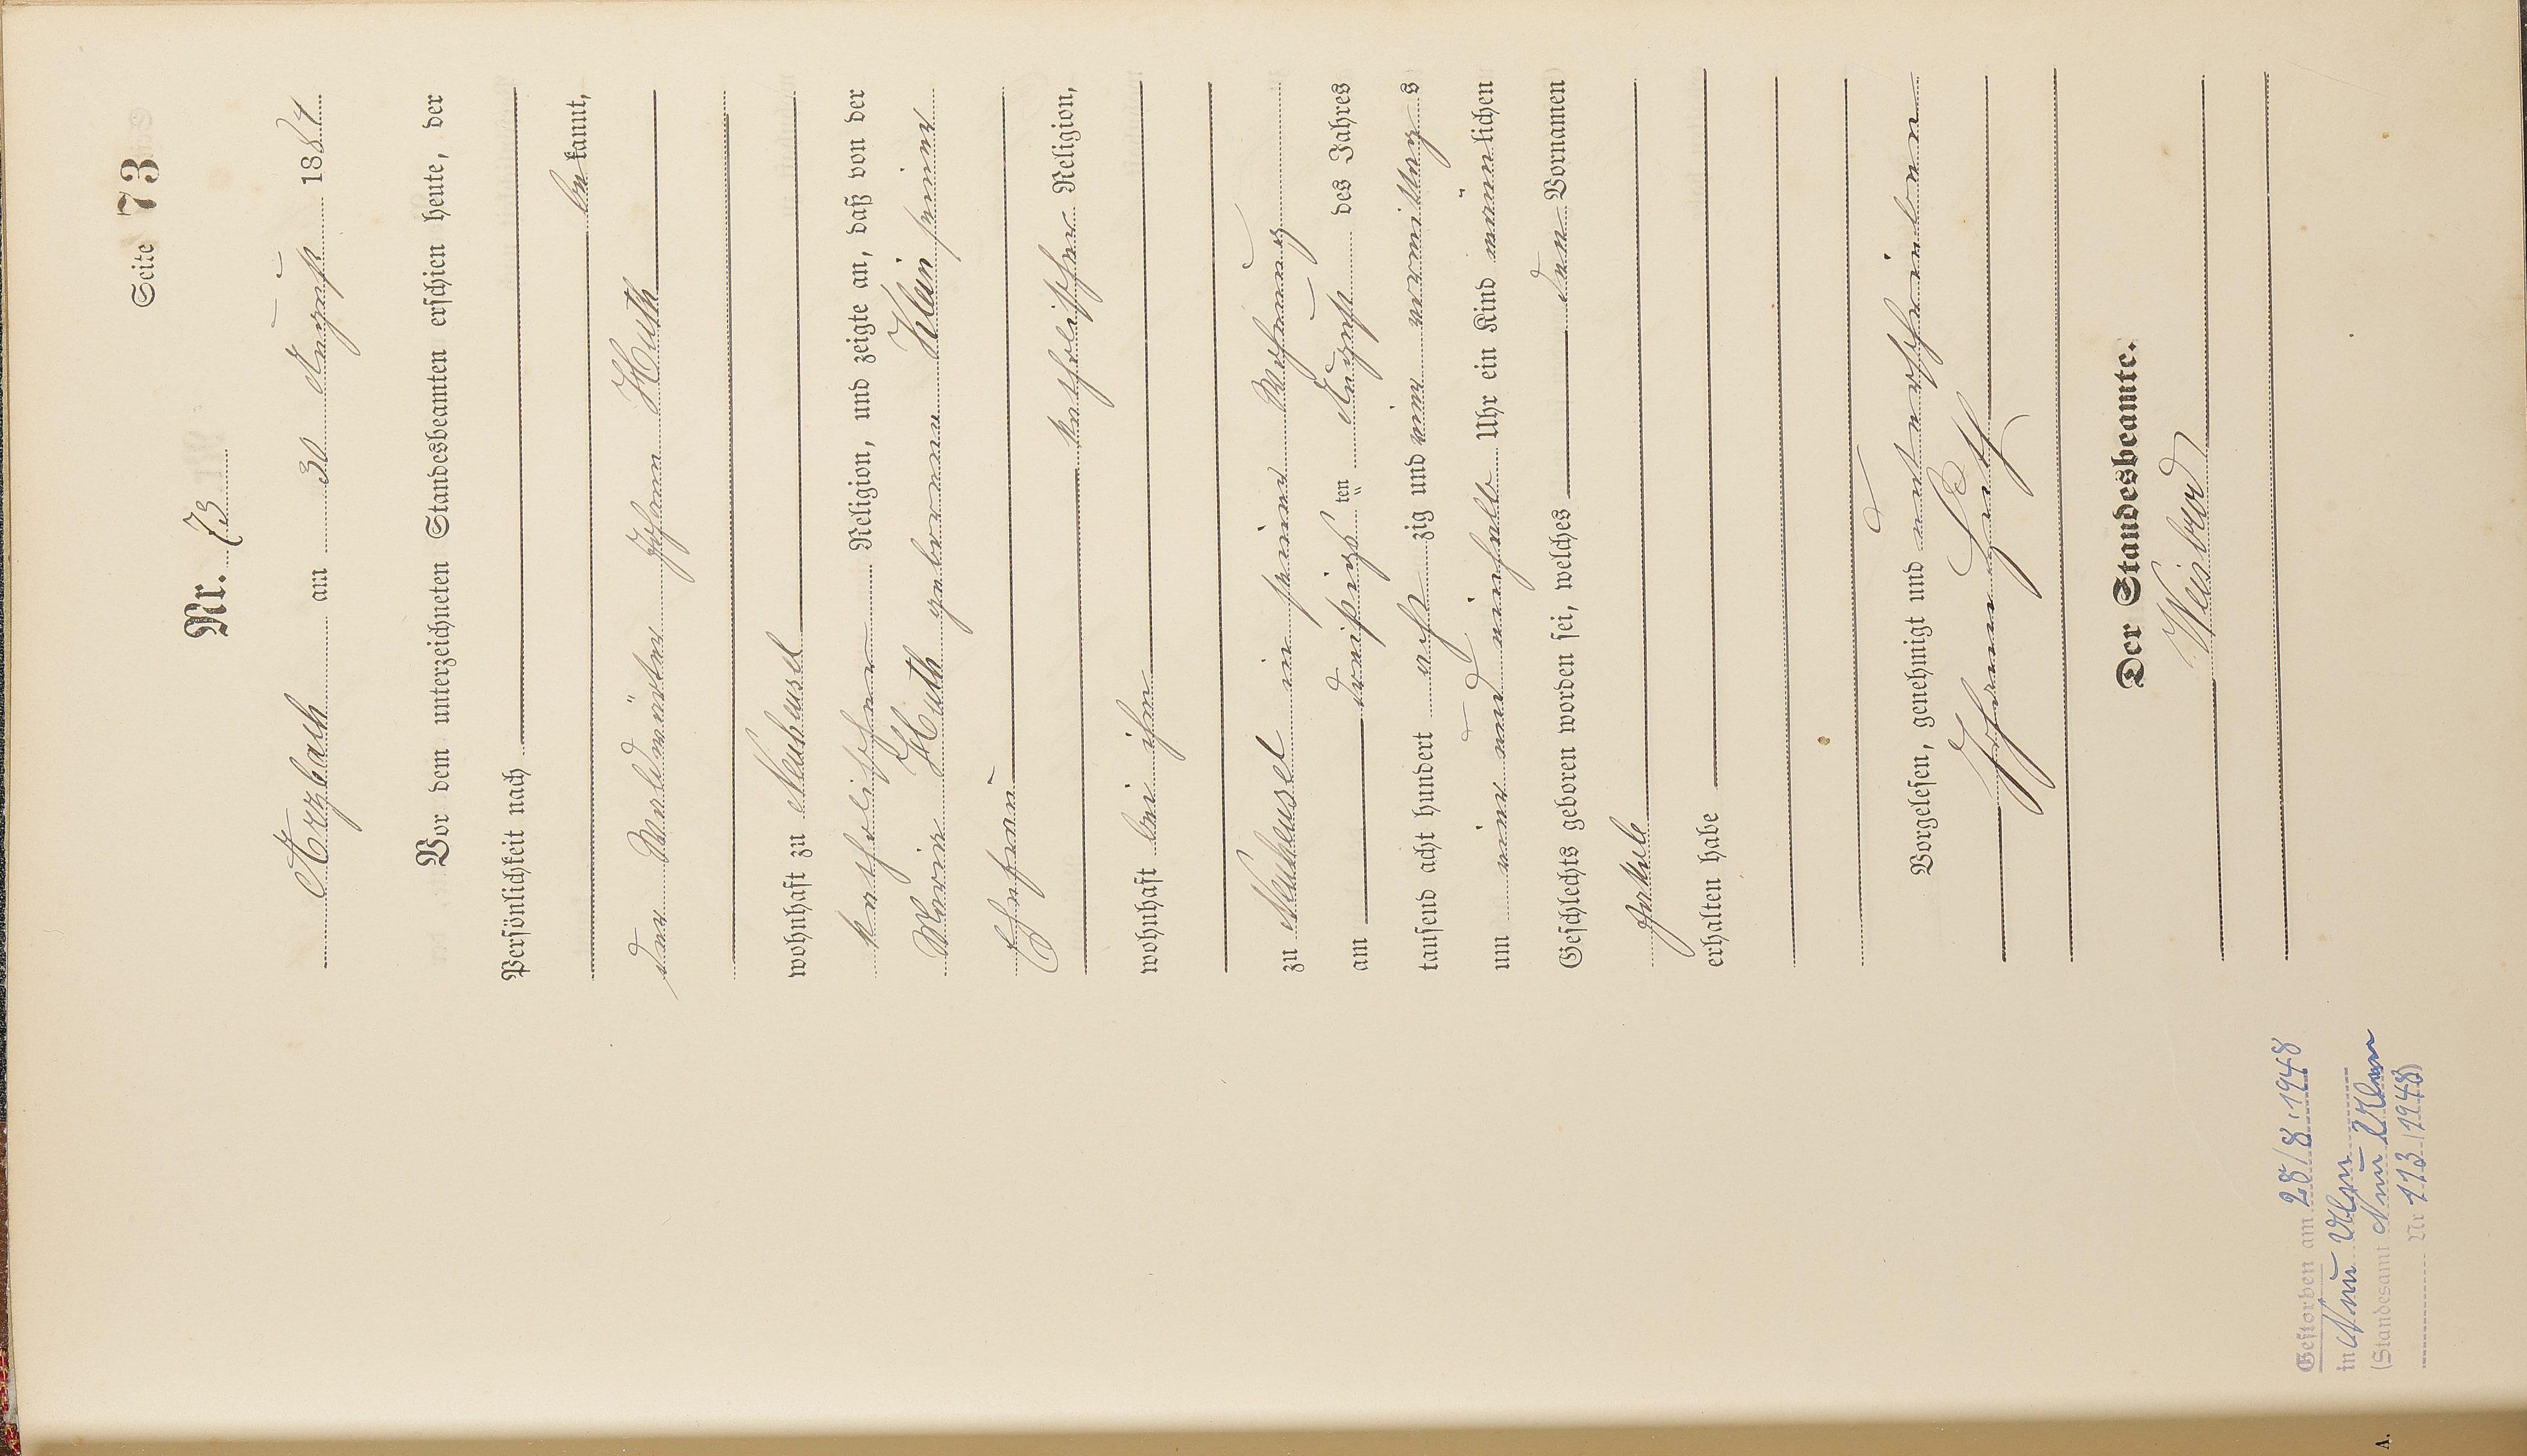 Seite 73
Nr. 73
Arzbach am 30 August 1881
Vor dem unterzeichneten Standesbeamten erschien heute, der
Persönlichkeit nach
be kannt,
der Waldwärter Johann Huth
wohnhaft zu Neuheusel
katholischer Religion, und zeigte an, daß von der
Maria Huth geborenen Klein seiner
Ehefrau
katholischer Religion,
wohnhaft bei ihm
zu Neuheusel in seiner Wohnung
am dreißigs ten August des Jahres
tausend acht hundert acht zig und eins vormittag s
um ein und einhalb Uhr ein Kind männ lichen
Geschlechts geboren worden sei, welches den Vornamen
Jakob
erhalten habe
Vorgelesen, genehmigt und unterschrieben
Johann Huth
Der Standesbeamte.
Weisbrod
Gestorben am 28/8.1948
in
(Standesamt
Nr 113/1948)
A.